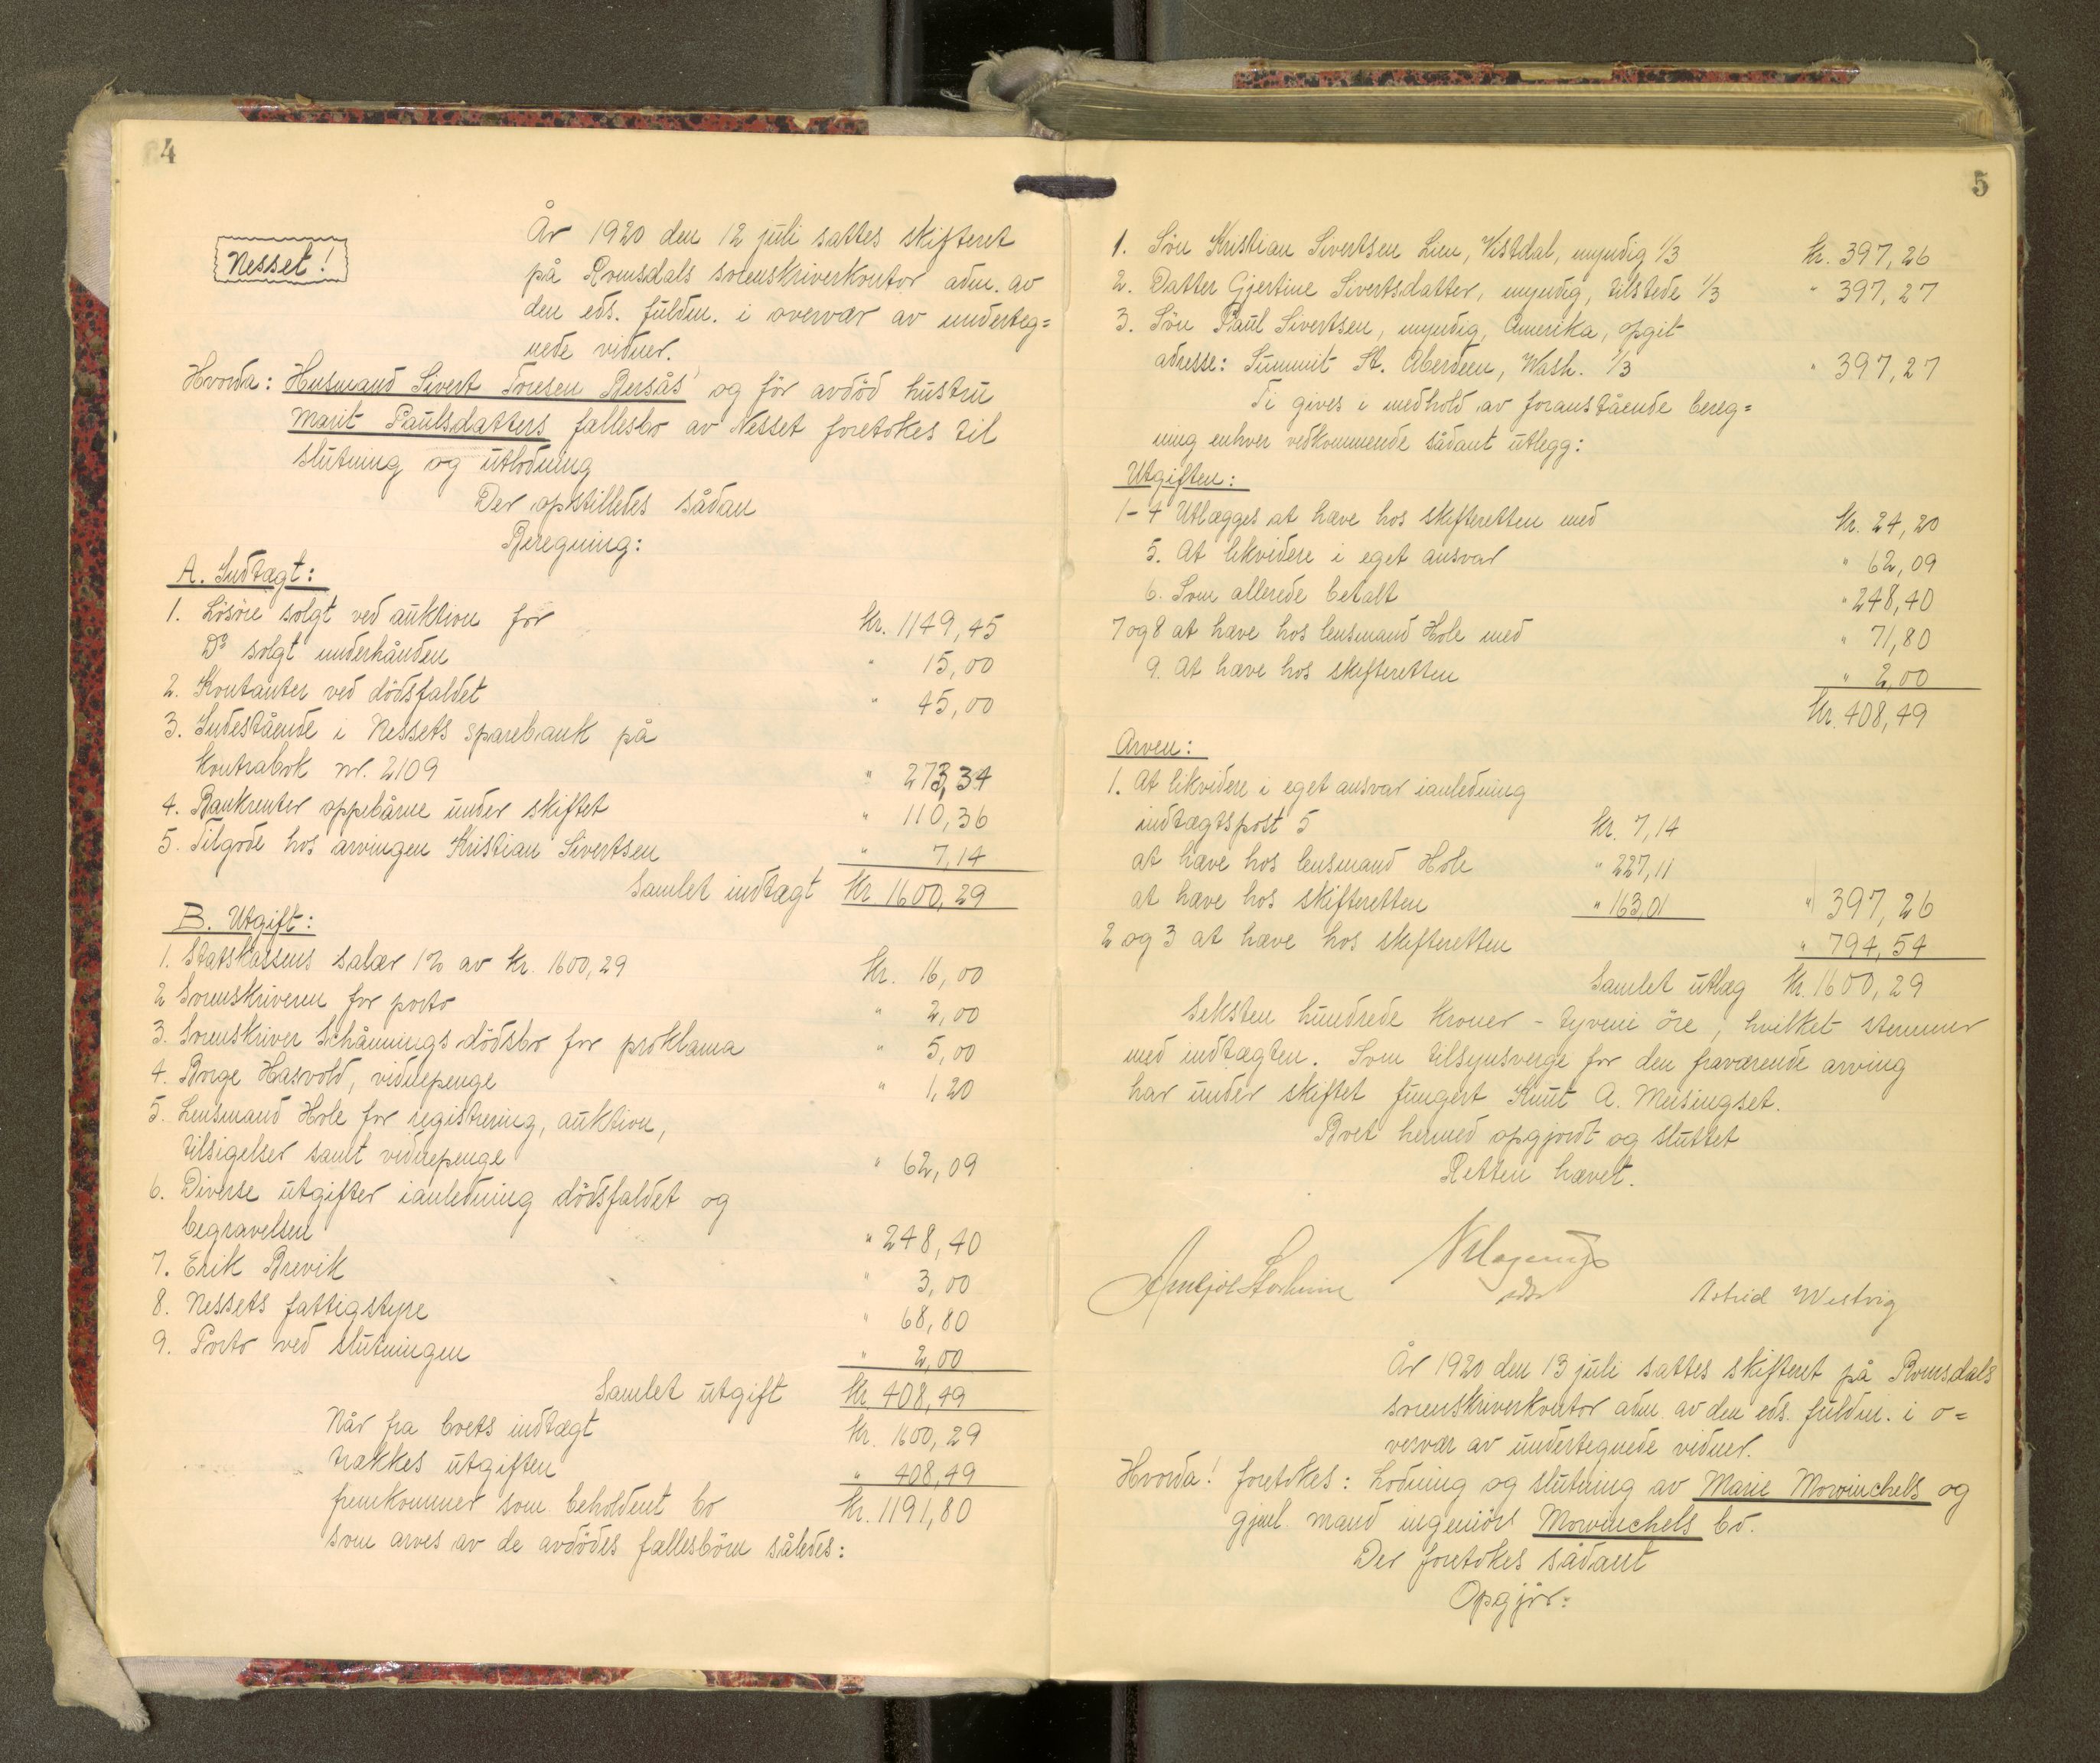 4
Nesset!
År 1920 den 12 juli sattes skifteret
på Romsdals sorenskriverkontor adm. av
den eds. fuldm. i overvær av underteg=
nede vidner.
Hvorda: Husmand Sivert Toresen Bersås' og før avdöd hustru
Marit Paulsdatters fællesbo av Nesset foretokes til
slutning og utlodning
Der opstilledes sådan
Beregning:
A. Indtægt:
1. Lösöre solgt ved auktion for kr. 1149,45
Do solgt underhånden " 15,00
2. Kontanter ved dödsfaldet " 45,00
3. Indestående i Nessets sparebank på
kontrabok nr. 2109 " 273,34
4. Bankrenter oppebårne under skiftet " 110,36
5. Tilgode hos arvingen Kristian Sivertsen " 7,14
Samlet indtægt kr 1600,29
B. Utgift:
1. Statskassens salær 1% av kr. 1600,29 kr. 16,00
2 Sorenskriveren for porto " 2,00
3. Sorenskriver Schånnings dödsbo for proklama " 5,00
4. Borge Hasvold, vidnepenge " 1,20
5. Lensmand Hole for registrering, auktion,
tilsigelser samt vidnepenge " 62,09
6. Diverse utgifter ianledning dödsfaldet og
begravelsen " 248,40
7. Erik Brevik " 3,00
8. Nessets fattigstyre " 68,80
9. Porto ved slutningen " 2,00
Samlet utgift kr 408,49
Når fra boets indtægt kr. 1600,29
trækkes utgiften " 408,49
fremkommer som beholdent bo kr. 1191,80
som arves av de avdödes fællesbörn således:
5
1. Sön Kristian Sivertsen Lien, Vistdal, myndig 1/3 kr. 397,26
2. Datter Gjertine Sivertsdatter, myndig, tilstede 1/3 " 397,27
3. Sön Paul Sivertsen, myndig, Amerika, opgit
adresse: Summit St. Aberdeen, Wash. 1/3 " 397,27
Ti gives i medhold av foranstående bereg=
ning enhver vedkommende sådant utlegg:
Utgiften:
1-4 Utlægges at hæve hos skifteretten med kr. 24,20
5. At likvidere i eget ansvar " 62,09
6. Som allerede betalt " 248,40
7 og 8 at hæve hos lensmand Hole med " 71,80
9. At hæve hos skifteretten " 2,00
kr. 408,49
Arven:
1. At likvidere i eget ansvar ianledning
indtægtspost 5 kr. 7,14
at hæve hos lensmand Hole " 227,11
at hæve hos skifteretten " 163,01 " 397,26
2 og 3 at hæve hos skifteretten " 794,54
Samlet utlæg kr. 1600,29
Seksten hundrede kroner - tyveni öre, hvilket stemmer
med indtægten. Som tilsynsverge for den fraværende arving
har under skiftet fungert Knut A. Meisingset.
Boet hermed opgjordt og sluttet
Retten hævet.
Astrid Westvig
År 1920 den 13 juli sattes skifteret på Romsdals
sorenskriverkontor adm. av den eds. fuldm. i o=
vervær av undertegnede vidner.
Hvorda! foretokes: Lodning og slutning av Marie Mowinchels og
gjenl. mand ingeniör Mowinchels bo.
Der foretokes sådant
Opgjör: